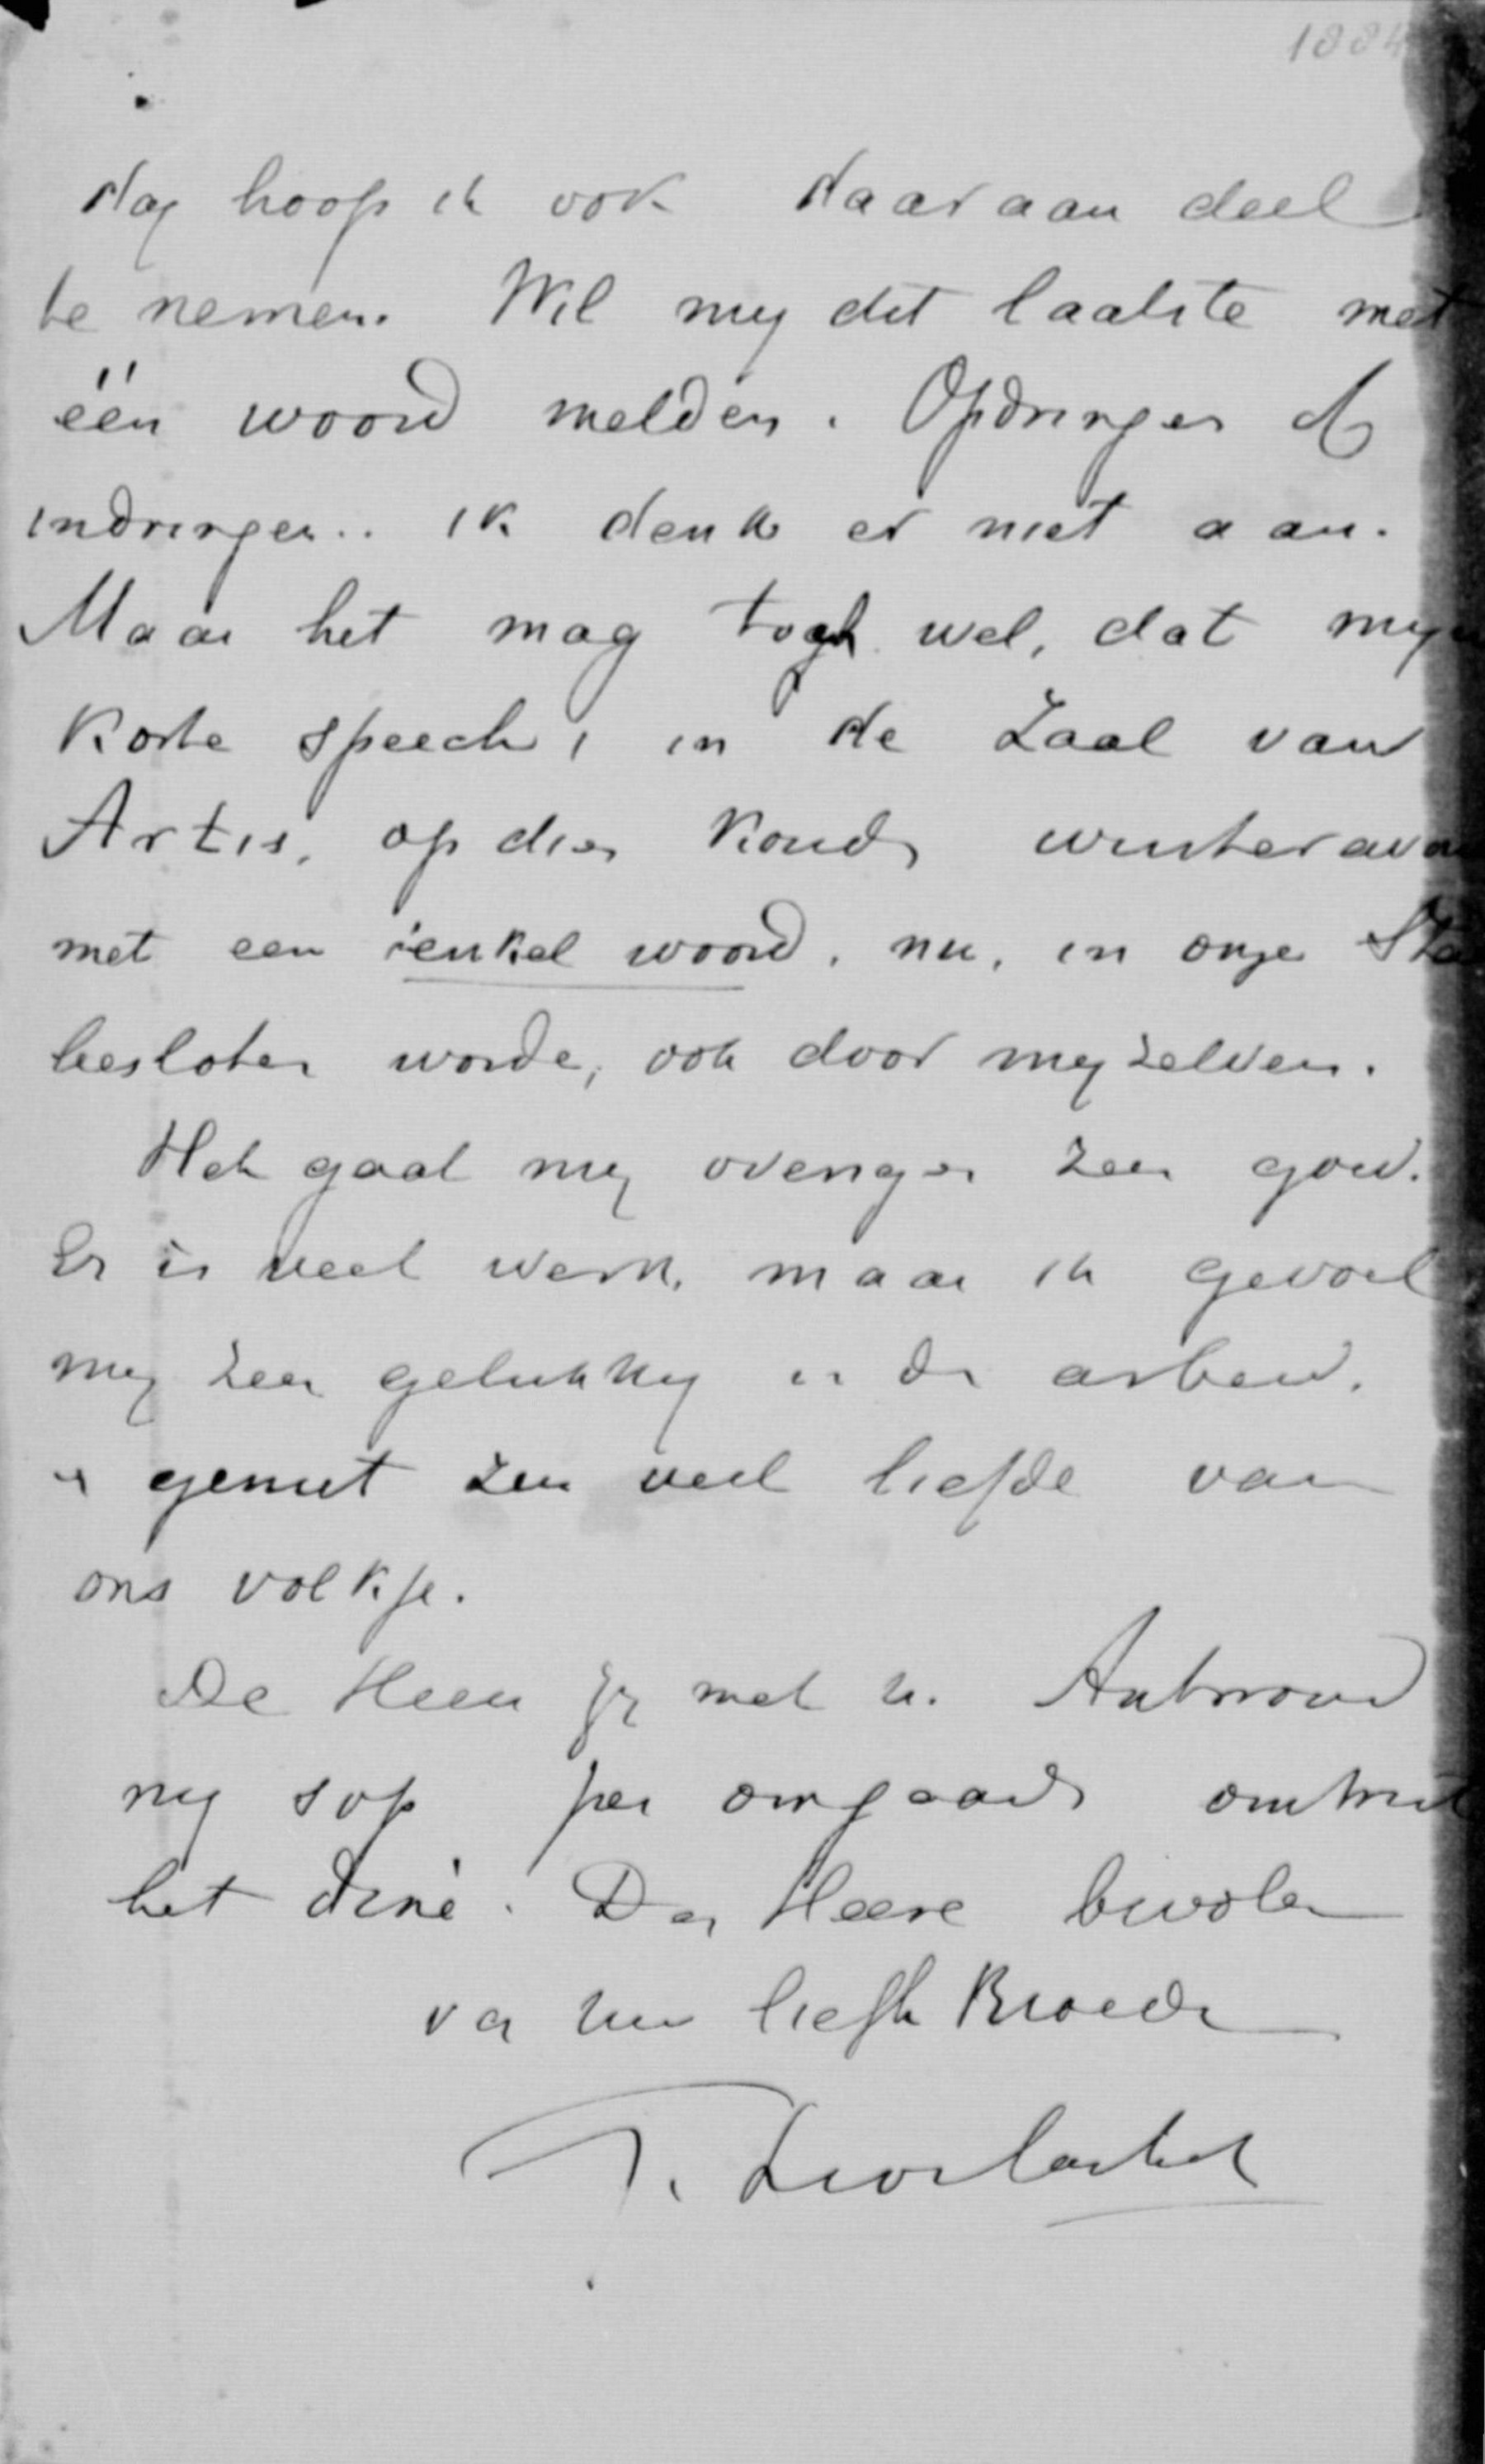 1884
dag hoop ik ook daaraan deel
te nemen. Wil my dit laatste met
één woord melden. Opdringen of
indringen.. ik denk er niet aan.
Maar het mag toch wel, dat myn
korte speech, in de Zaal van
Artis, op dien kouden winteravo
met een enkel woord, nu, in onze Sta
besloten worde, ook door myzelven.
Het gaat my overigens zeer goed.
Er is veel werk, maar ik gevoel
my zeer gelukkig in den arbeid.
en geniet zeer veel liefde van
ons volkje.
De Heere zy met u. Antwoord
my s.v.p. per omgaande omtrent
het diné. Den Heere bevolen
van uw liefh Broeder